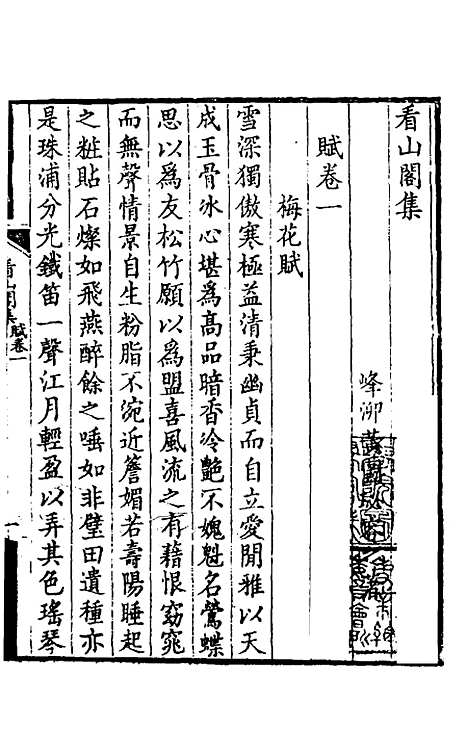 看山閣集
峰泖黃
賦卷一
梅花賦
雪深獨傲寒極益清秉幽貞而自立愛閒雅以天
成玉骨冰心堪爲高品暗香冷艷不媿魁名鶯蝶
思以爲友松竹願以爲盟喜風流之有藉恨窈窕
而無聲情景自生粉脂不涴近簷媚若壽陽睡起
之粧貼石燦如飛燕醉餘之唾如非璧田遺種亦
是珠浦分光鐵笛一聲江月輕盈以弄其色瑤琴
看山閣集 賦卷一 一